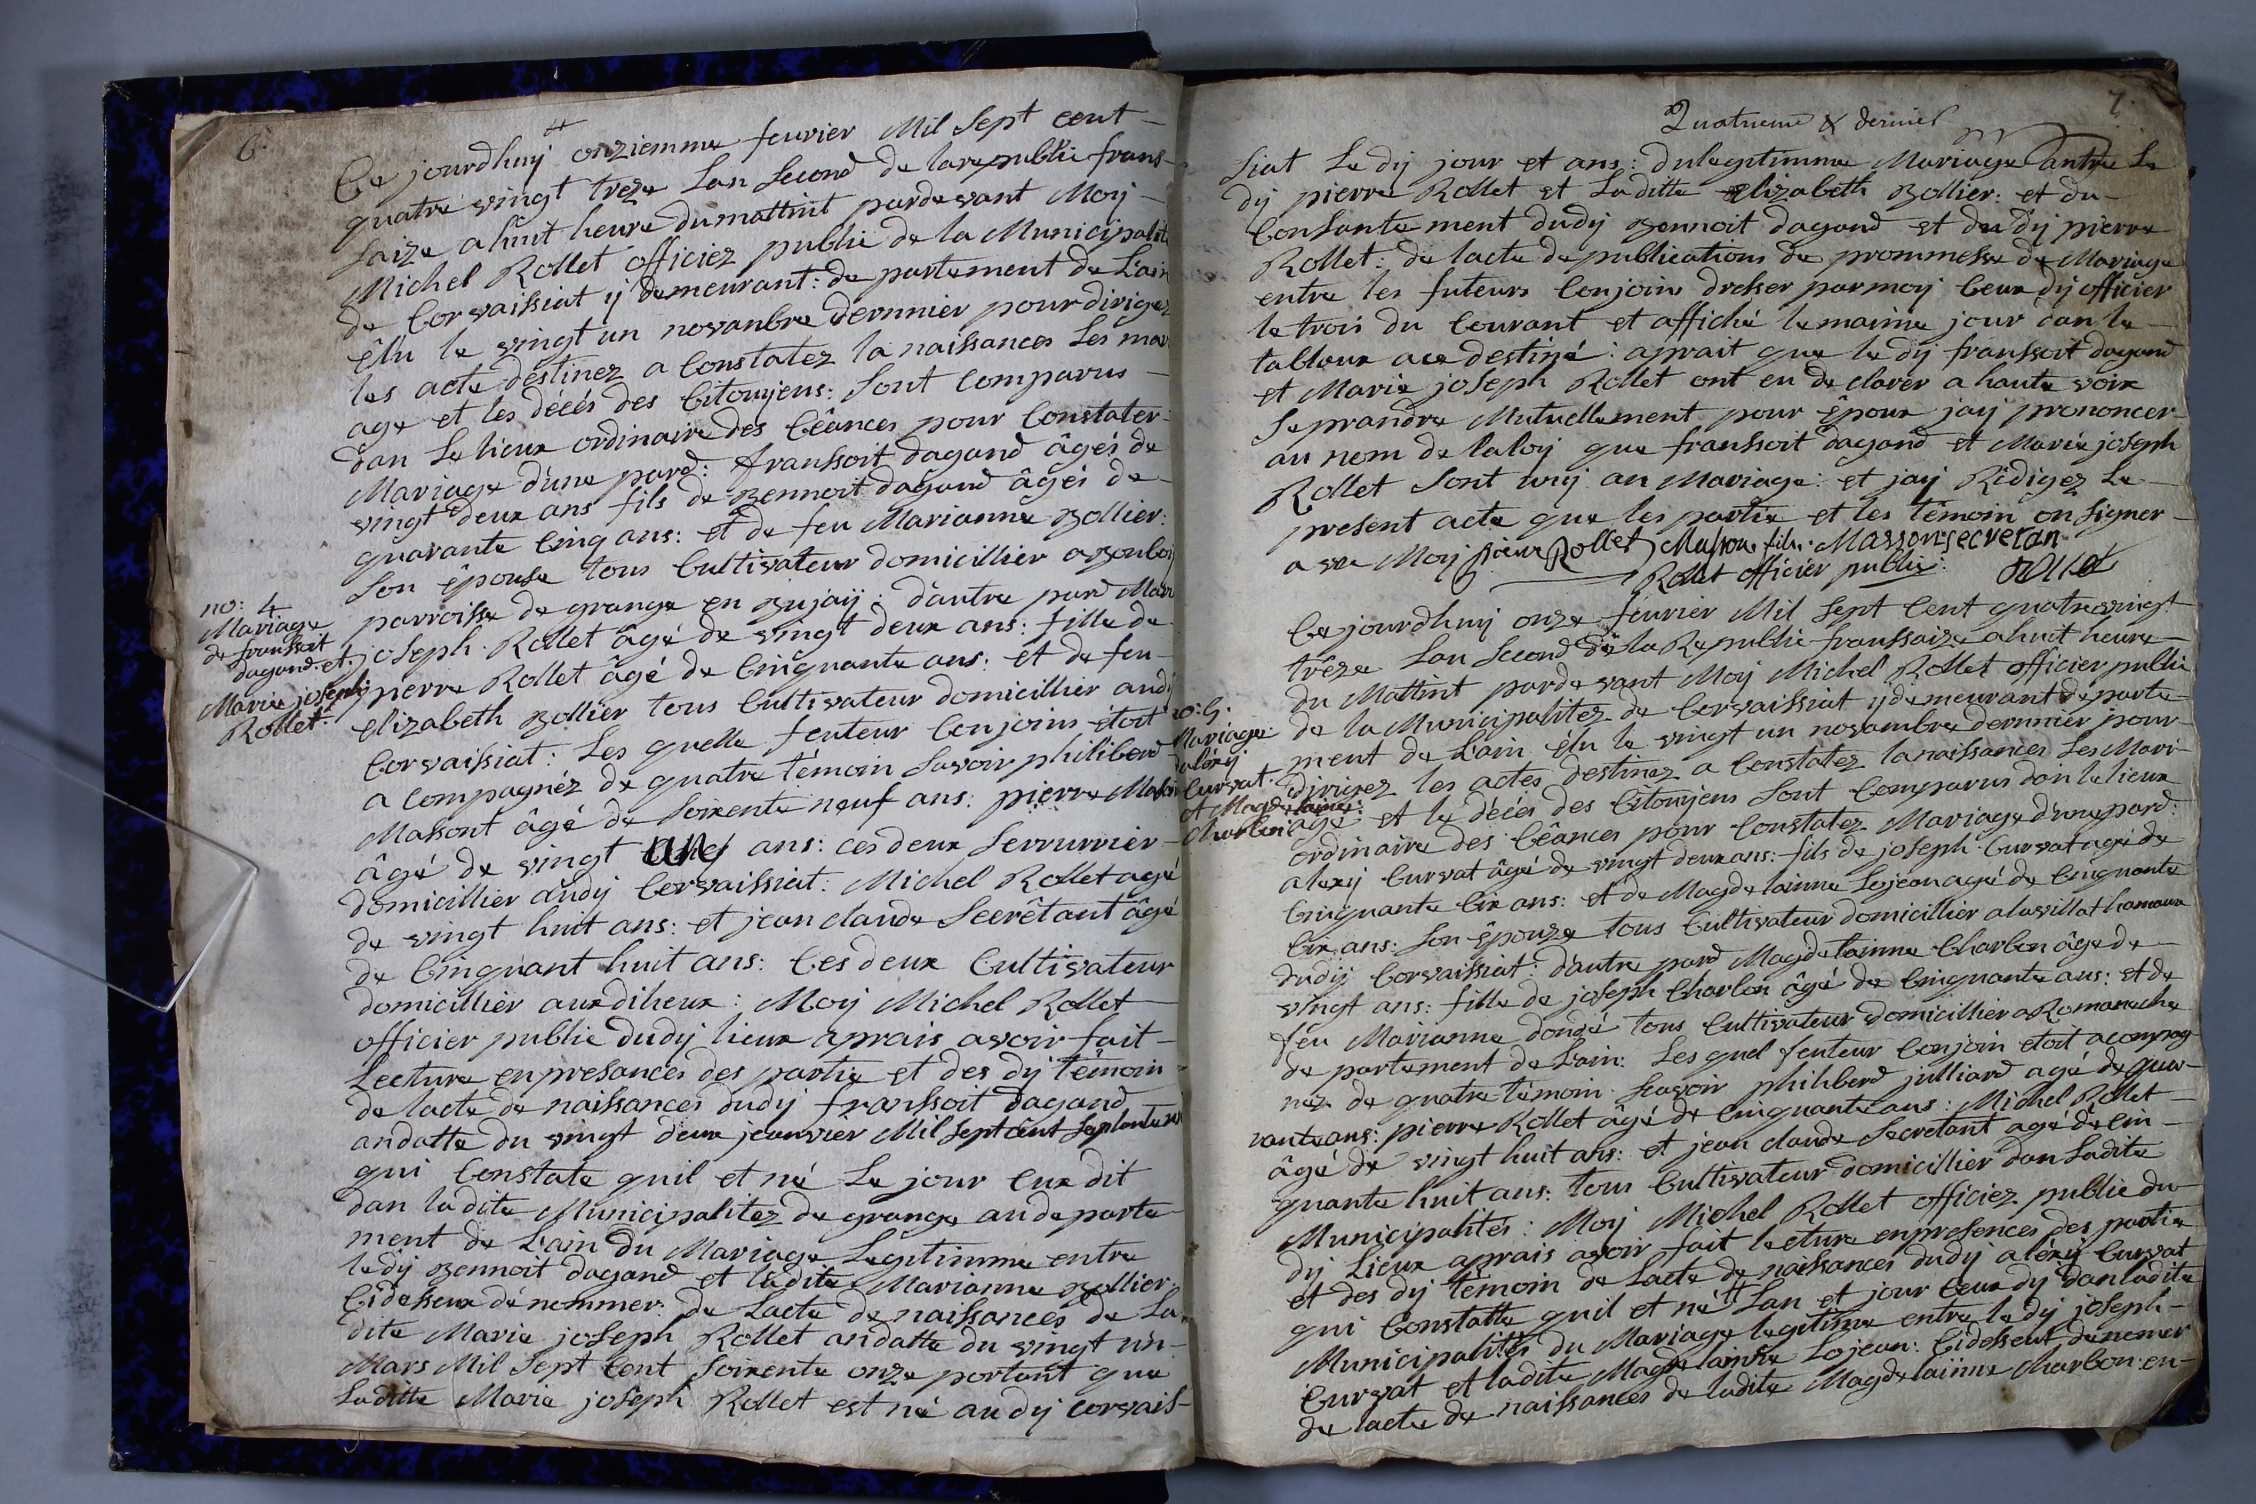 6.
Ce jourdhuij onziemme feuvier Mil sept cent
quatre vingt treze Lan second de larepublic frans-
saize a huit heure dumattint pardevant Moij
Michel Rollet officiez public de la Municipalité
de Corvaissiat ij demeurant: departement de L'ain
élu le vingt un novanbre dernnier pour dirigez
les acte destinez a Constatez la naissances Les mari
age et les décés des Citouijens: sont Comparus
dan Le lieux ordinaire des Céances pour Constater
Mariage d'une pard: franssoit dagand âgés de
vingt deux ans fils de Bennoit dagand âgéi de
quarante Cinq ans: et de feu Marianne Bollier:
son épouse tous Cultivateur domicillier a
parroisse de grange en Bujaij: d'autre pard Marie
joseph Rollet âgé de vingt deux ans: fille de
pierre Rollet âgé de Cinquante ans: et de feu
elizabeth Bollier tous Cultivateur domicillier audij
Corvaissiat: Les quelle feuteur Conjoins étoit
a Compagnéz de quatre témoin savoir philiberd
Massont âgé de soixente neuf ans: pierre Masson
âgé de vingt un ans: ces deux serrurrier
domicillier audij Corvaissiat: Michel Rollet agé
de vingt huit ans: et jean claude Secrêtant âgé
de Cinquant huit ans: Ces deux Cultivateur
domicillier auxdilieux: Moij Michel Rollet
officier public dudij lieux aprais avoir fait
Lecture enpresances des partie et des dij témoin
de lacte de naissances dudij franssoit dagand
andatte du vingt deux jeanvier Mil sept cent septante
qui Constate quil et né Le jour Cux dit
dan ladite Municipalitez de grange au departe-
ment de L'ain du Mariage Legitimme entre
ledij Bennoit dagand et ladite Marianne Bollier
Cidesseux dénommer: de Lacte de naissances de La
dite Marie joseph Rollet andatte du vingt un
Mars Mil Sept Cent soixente onze portant que
Laditte Marie joseph Rollet est né audij corvais-
no: 4
Mariage
de franssoit
dagand: et
Marie joseph
Rollet:
7.
Quatrieme & dernier
siat Le dij jour et ans: dulegitimme Mariage antre Le
dij pierre Rollet et Laditte elizabeth Bollier: et du
Consantement dudij Bennoit dagand et du dij pierre
Rollet: de lacte de publications de prommesse de Mariage
entre les futeurs Conjoins dresser par moij Ceux dij officier
le trois du Courant et affiché le maime jour dan le
tableux ace destiné: aprait que le dij franssoit dagand
et Marie joseph Rollet ont eu de clarer a haute voix
se prandre Mutuellement pour époux jaij prononcer
au nom de laloij que franssoit dagand et Marie joseph
Rollet sont unij an Mariage: et jaij Ridigez Le
present acte que les partie et les témoin on signer
a ve Moij pierre Rollet Masson fils. Masson secretan
Rollet officier public: Rollet
Ce jourdhuij onze feuvrier Mil sept Cent quatrevingt
trêze Lan second de la Republic franssaize ahuit heure
du Mattint pardevant Moij Michel Rollet officier public
de la Municipalitez de Corvaissiat ij demeurant departe
ment de L'ain élu le vingt un novambre dernnier pour
dirigez les actes destinez a Constatez lanaissances Les Mari
age: et le décés des Citouijens sont Comparus dan le lieux
ordinaire des Céances pour Constatez Mariage d'une pard:
alexij Curvat âgé de vingt deux ans: fils de joseph Curvat agé de
Cinquante Cix ans: et de Magdelainne Lojean agé de Cinquante
Cix ans: son épouze tous Cultivateur domicillier alavillat hamaux
dudij Corvaissiat: d'autre pard Magdelainne Charlon âge de
vingt ans: fille de joseph Charlon âgé de Cinquante ans: et de
feu Marianne dongé tous Cultivateur domicillier a Romaneche
de partement de L'ain: Les quel feuteur Conjoin etoit acompag
nez de quatre témoin scavoir philiberd julliard agé de qua-
rante ans: pierre Rollet âgé de Cinquante ans: Michel Rollet
âgé de vingt huit ans: et jean claude Secretant agé de Cin-
quante huit ans: tous Cultivateur domicillier dan Ladite
Municipalités: Moij Michel Rollet officiez public du
dij Lieux aprais avoir fait lecture enpresences des partie
et des dij témoin de Lacte de naissances dudij aléxij Curvat
qui Constatte quil et né Lan et jour Ceux dij dan ladite
Municipalités du Mariage legitime entre le dij joseph
Curvat et ladite Magdelainne Lojean: Cidesseux denomer
de lacte de naissances de ladite Magdelainne Charlon: en-
no: 5.
Mariage:
daléxij
Curvat:
et Magdelainne:
Charlon: